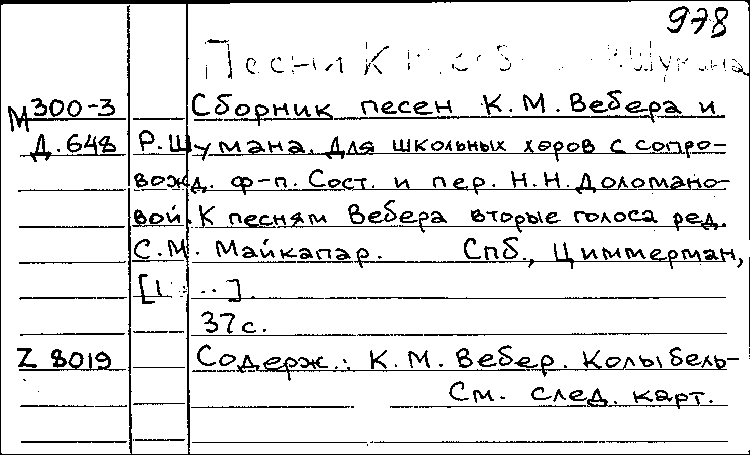 978
Песни К Шумана
М300-3 Сборник песен К.М. Вебера и
Д.648 Р.Шумана. Для школьных хоров с сопро-
вожд. ф-п. Сост. и пер. Н.Н. Доломано-
вой. К песням Вебера вторые голоса ред.
С.М. Майкапар. Спб., Циммерман,
37с.
Z 8019 Содерж.: К.М. Вебер. Колыбель-
См. след. карт.